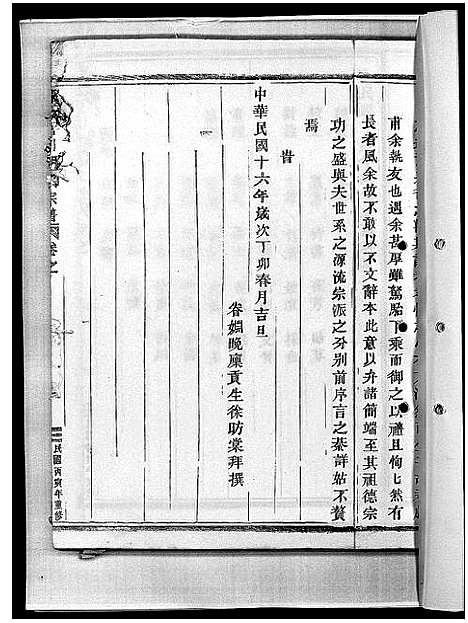 甫余執友也遇余甚厚雖駑駘下乘而御之以禮且恂恂然有
長者風余故不敢以不文辭本此意以弁諸簡端至其祖德宗
功之盛與夫世系之源流宗派之分別前序言之綦詳姑不贅
焉
旹
中華民國十六年歲次丁卯春月吉旦
眷姻晚廩貢生徐昉棠拜撰
宗譜 卷之
民國丙寅年重修